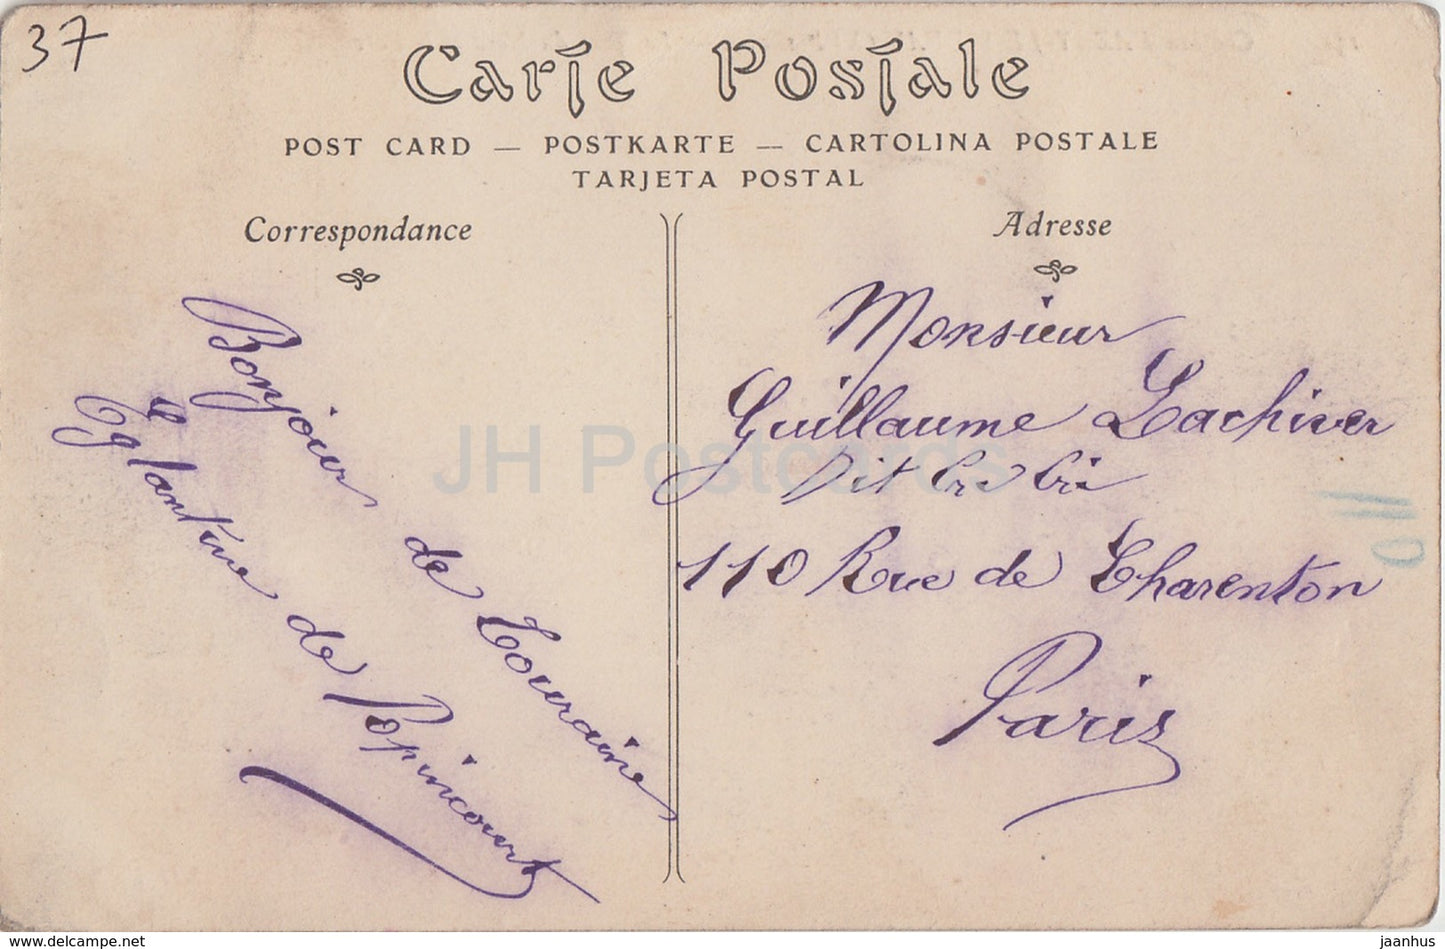 37
Carte Postale
POST CARD — POSTKARTE — CARTOLINA POSTALE
TARJETA POSTAL
Correspondance
Adresse
Bonjour de Touraine
Eglantine de Popincourt
Monsieur
Guillaume Lachiver
Dit Cri Cri
110 Rue de Charenton
Paris
110
JH Postcards
www.delcampe.net
jaanhus